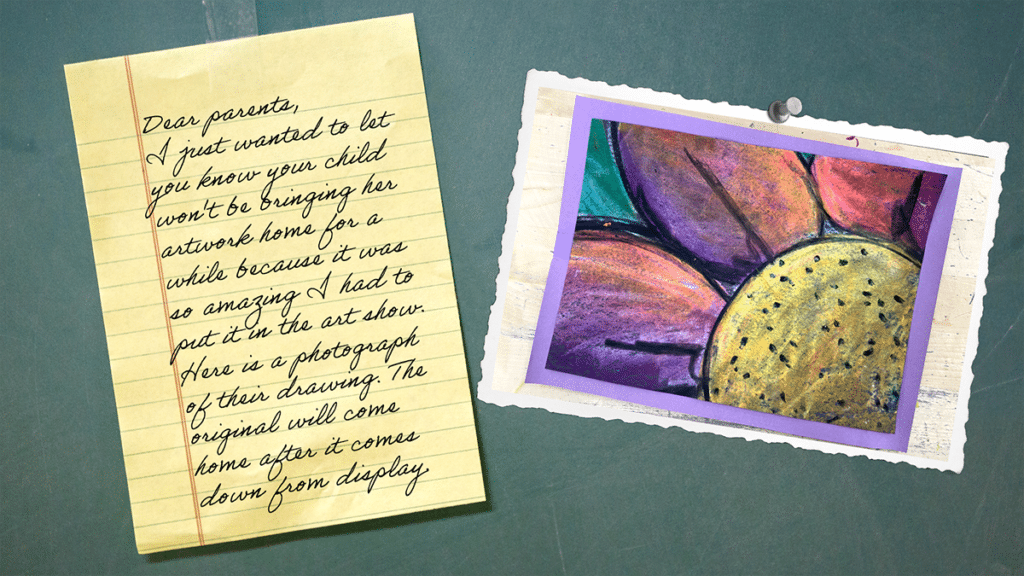 Dear parents,
I just wanted to let
you know your child
won't be bringing her
artwork home for a
while because it was
so amazing I had to
put it in the art show.
Here is a photograph
of their drawing. The
original will come
home after it comes
down from display.